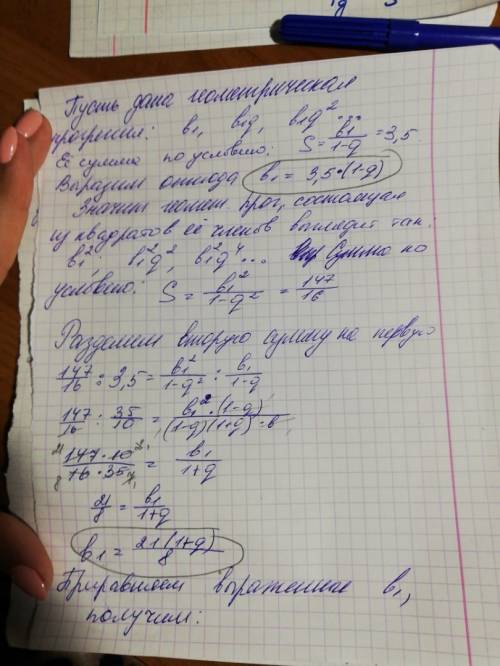 Пусть дана геометрическая
прогрессия: b₁, b₁q, b₁q² ...
Её сумма по условию: S = b₁/(1-q) = 3,5
Выразим отсюда b₁ = 3,5·(1-q)
Значит геомет. прог, состоящая
из квадратов её членов выглядит так:
b₁², b₁²q², b₁²q⁴... Сумма по
условию: S = b₁²/(1-q²) = 147/16
Разделим вторую сумму на первую
147/16 : 3,5 = b₁²/(1-q²) : b₁/(1-q)
147/16 : 35/10 = b₁²·(1-q)/(1-q)(1+q)·b
147·10/16·35 = b₁/(1+q)
21/8 = b₁/(1+q)
b₁ = 21(1+q)/8
Приравняем выраженное b₁,
получим: